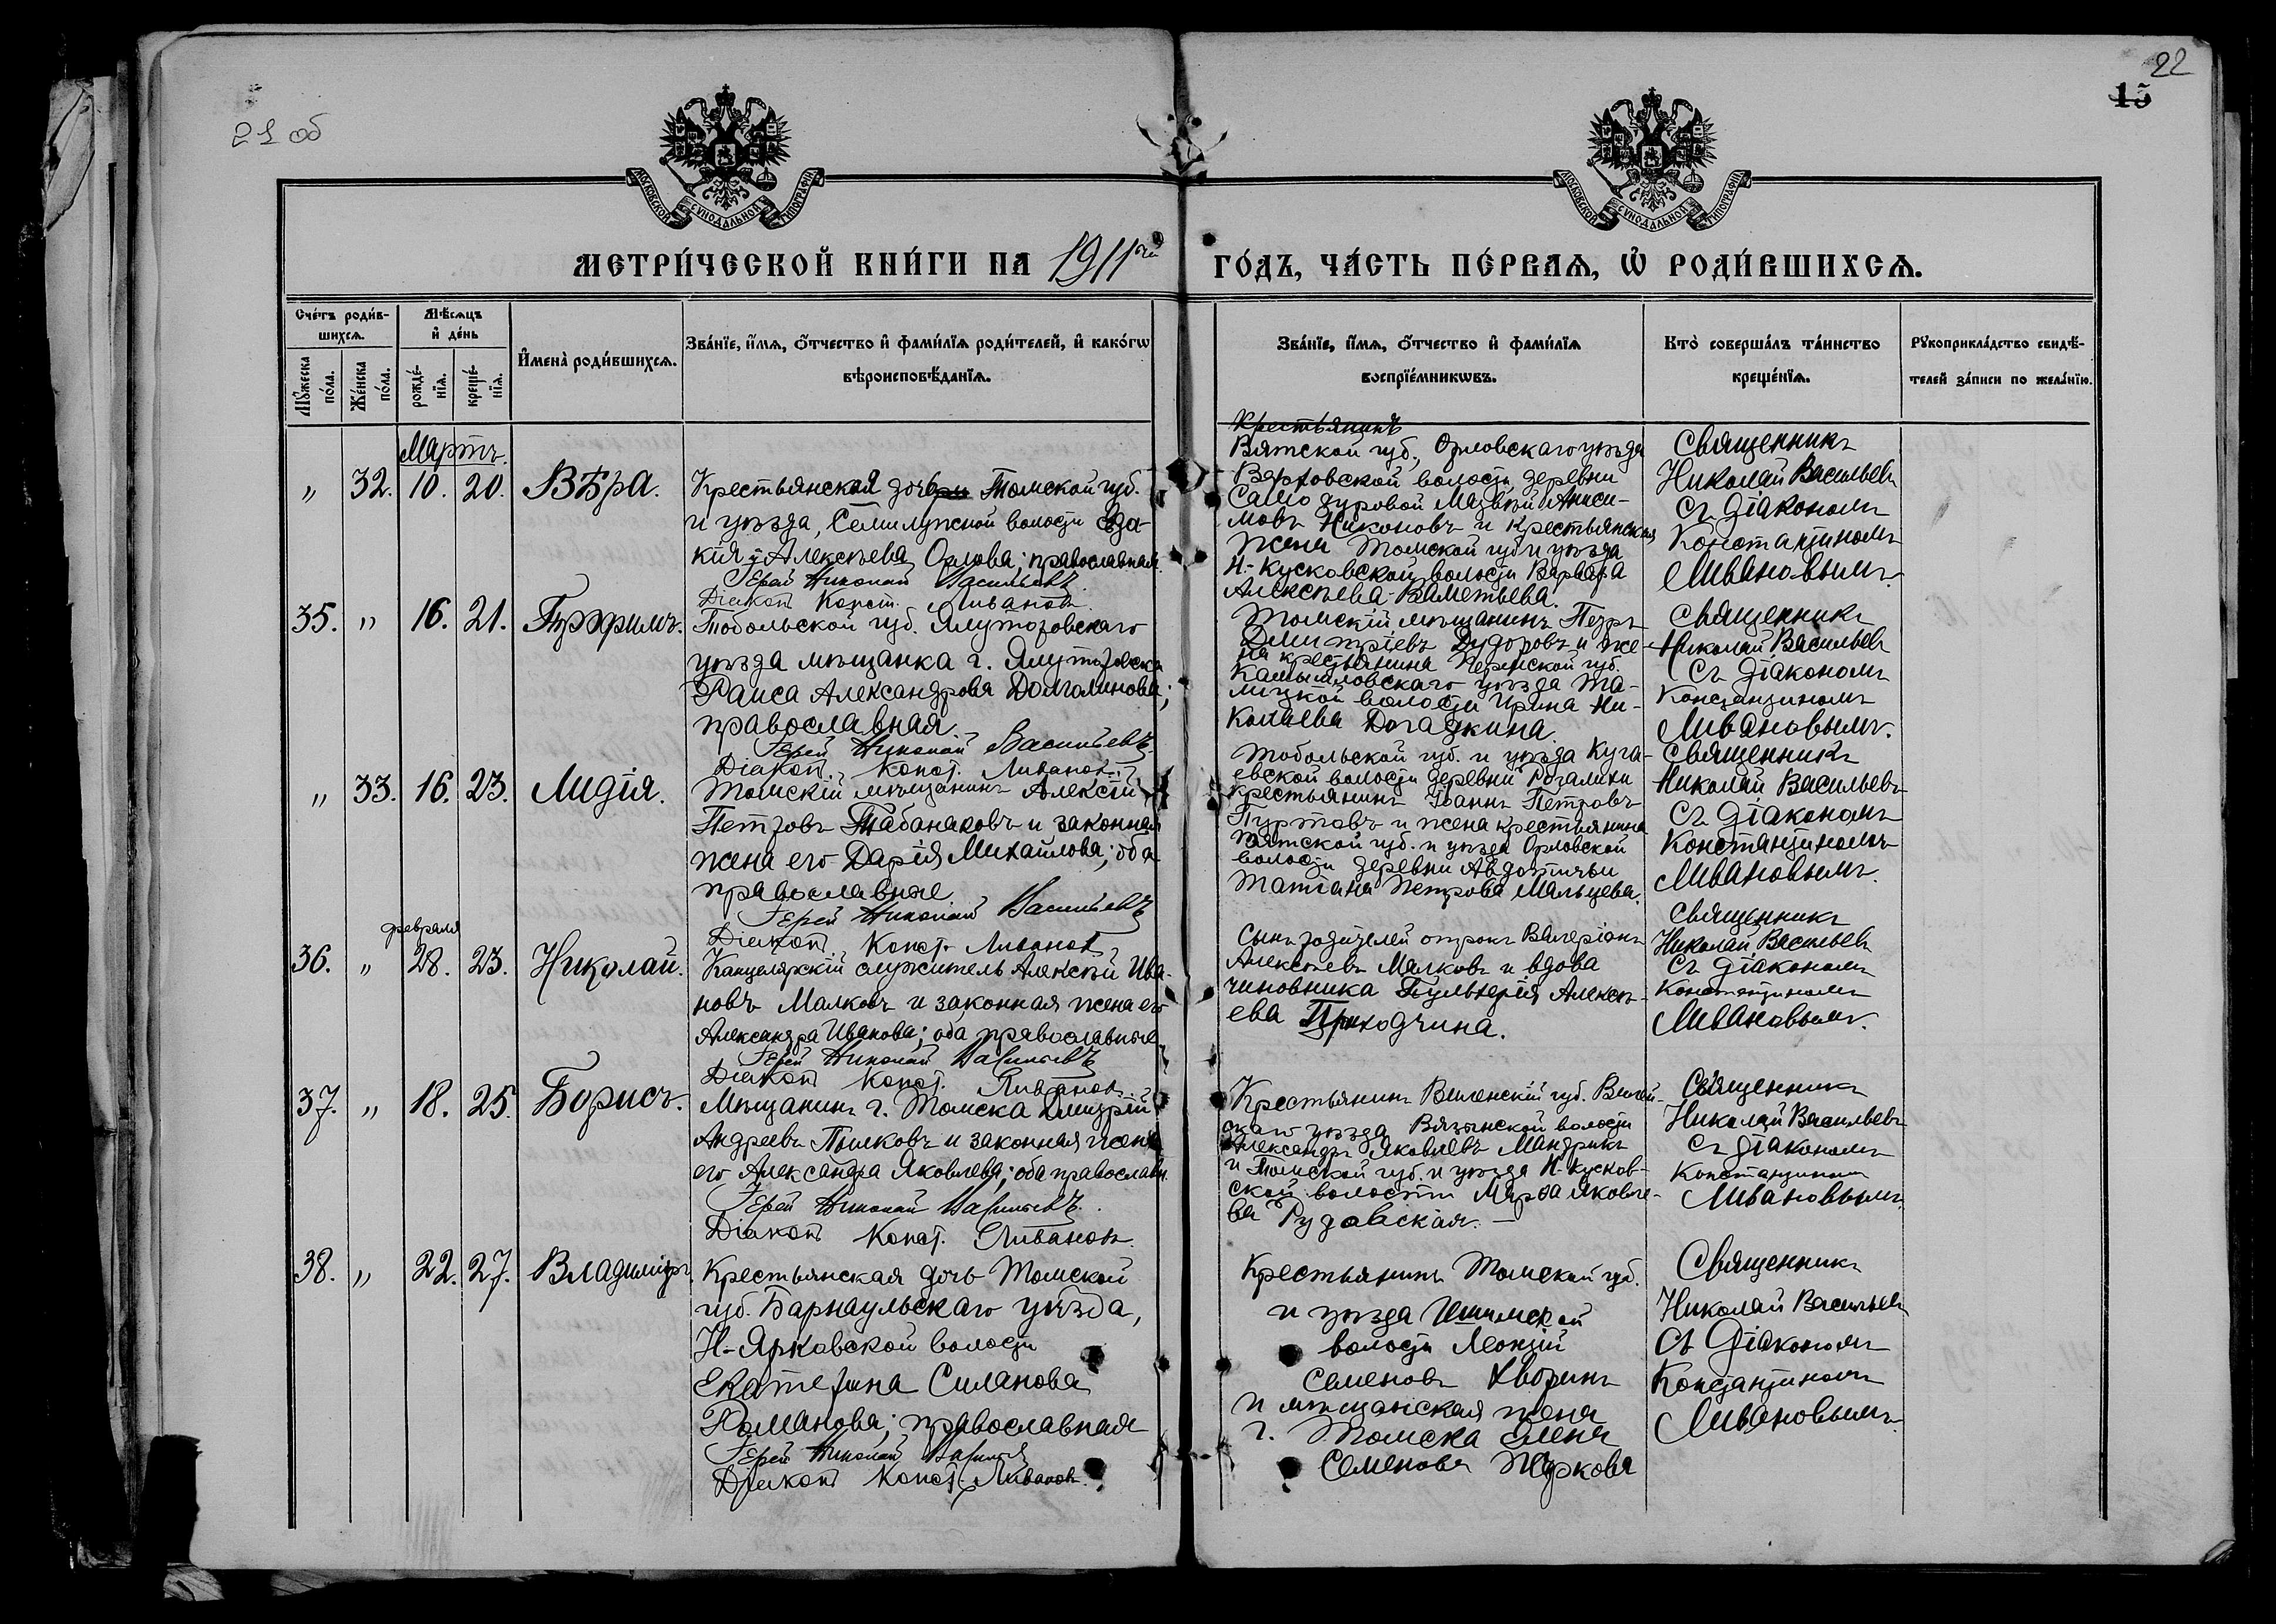 21 об
22
15
МОСКОВСКОЙ СѴНОДАЛЬНОЙ ТИПОГРАФІИ
МОСКОВСКОЙ СѴНОДАЛЬНОЙ ТИПОГРАФІИ
МЕТРИ́ЧЕСКОЙ КНИ́ГИ НА 1911ый ГО́ДЪ, ЧА́СТЬ ПЕ́РВАѦ, Ѡ҆ РОДИ́ВШИХСѦ.
Сче́тъ роди́в-
шихсѧ.
Мѣ́сѧцъ
и҆ де́нь
Мꙋ́жеска
по́ла.
Же́нска
по́ла.
рожде́-
нїѧ.
креще́-
нїѧ.
И҆мена̀ роди́вшихсѧ.
Зва́нїе, и҆́мѧ, ѻ҆́тчество и҆ фами́лїѧ роди́телей, и҆ како́гѡ
вѣроисповѣ́данїѧ.
Зва́нїе, и҆́мѧ, ѻ҆́тчество и҆ фами́лїѧ
воспрїе́мникѡвъ.
Кто̀ соверша́лъ та́инство
креще́нїѧ.
Рꙋкоприкла́дство свидѣ́-
телей за́писи по жела́нїю.
Мартъ.
„ 32. 10. 20. Вѣра.
Крестьянская дочь Томской губ.
и уѣзда, Семилужной волости Евдо-
кія Алексѣева Орлова; православная.
Іерей Николай Васильевъ
Діаконъ Конст. Ливановъ.
Крестьянинъ
Вятской губ., Орловскаго уѣзда
волости деревни
Матвѣй Аниси-
мовъ Никоновъ и крестьянская
жена Томской губ. и уѣзда
Н-Кусковской волости Варвара
Алексѣева Ваметьева.
Священникъ
Николай Васильевъ
съ діакономъ
Константиномъ
Ливановымъ.
35. „ 16. 21. Трофимъ.
Тобольской губ. Ялуторовскаго
уѣзда мѣщанка г. Ялуторовска
Раиса Александрова Долгалинова;
православная.
Іерей Николай Васильевъ.
Діаконъ Конст. Ливановъ.
Томскій мѣщанинъ Петръ
Дмитріевъ Дудоровъ и же-
на крестьянина Пермской губ.
Камышловскаго уѣзда Та-
лицкой волости Ирина Ни-
колаева Догадкина.
Священникъ
Николай Васильевъ
съ діакономъ
Константиномъ
Ливановымъ.
„ 33. 16. 23. Лидія.
Томскій мѣщанинъ Алексій
Петровъ Табанаковъ и законная
жена его Дарія Михайлова; оба
православные
Іерей Николай Васильевъ
Діаконъ Конст. Ливановъ
Тобольской губ. и уѣзда Куга-
евской волости деревни Рогалихи
крестьянинъ Іоаннъ Петровъ
Пуртовъ и жена крестьянина
Вятской губ. и уѣзда Орловской
волости деревни Авдотьчьи
Татіана Петрова Мальцева.
Священникъ
Николай Васильевъ
съ діакономъ
Константиномъ
Ливановымъ.
февраля
36. „ 28. 23. Николай.
Канцелярскій служитель Алексѣй Ива-
новъ Малковъ и законная жена его
Александра Иванова; оба православные
Іерей Николай Васильевъ
Діаконъ Конст. Ливановъ
Сынъ родителей отрокъ Валеріанъ
Алексѣевъ Малковъ и вдова
чиновника Пульхерія Алексѣ-
ева Приходчина.
Священникъ
Николай Васильевъ
съ діакономъ
Константиномъ
Ливановымъ.
37. „ 18. 25. Борисъ.
Мѣщанинъ г. Томска Дмитрій
Андреевъ Пылковъ и законная жена
его Александра Яковлева; оба православн.
Іерей Николай Васильевъ.
Діаконъ Конст. Ливановъ.
Крестьянинъ Виленскій губ. Вилей-
скаго уѣзда Вязынской волости
Александръ Яковлевъ Мандрикъ
и Томской губ. и уѣзда Н-Кусков-
ской волости Марѳа Яковле-
ва Рудавская.
Священникъ
Николай Васильевъ
съ діакономъ
Константиномъ
Ливановымъ.
38. „ 22. 27. Владиміръ.
Крестьянская дочь Томской
губ. Барнаульскаго уѣзда,
Н-Ярковской волости
Екатерина Силанова
Романова; православная
Іерей Николай Васильевъ
Діаконъ Конст. Ливановъ.
Крестьянинъ Томской губ.
и уѣзда Ишимской
волости Леонтій
Семеновъ Хворинъ
и мѣщанская жена
г. Томска Елена
Семенова Жиркова
Священникъ
Николай Васильевъ
съ Діакономъ
Константиномъ
Ливановымъ.